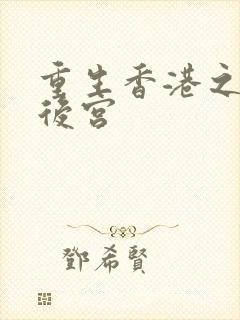 重生香港之
後宮
鄧希賢